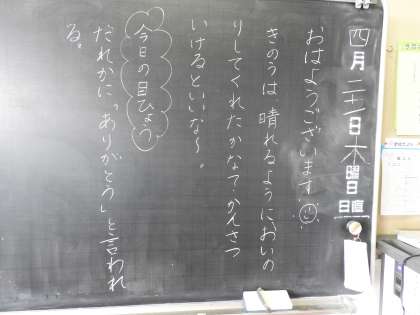 四月二十一日木曜日
日直
おはようございます
きのうは晴れるようにおいの
りしてくれたかな？かんさつ
いけるといいな〜。
今日の目ひょう
だれかに「ありがとう」と言われ
る。